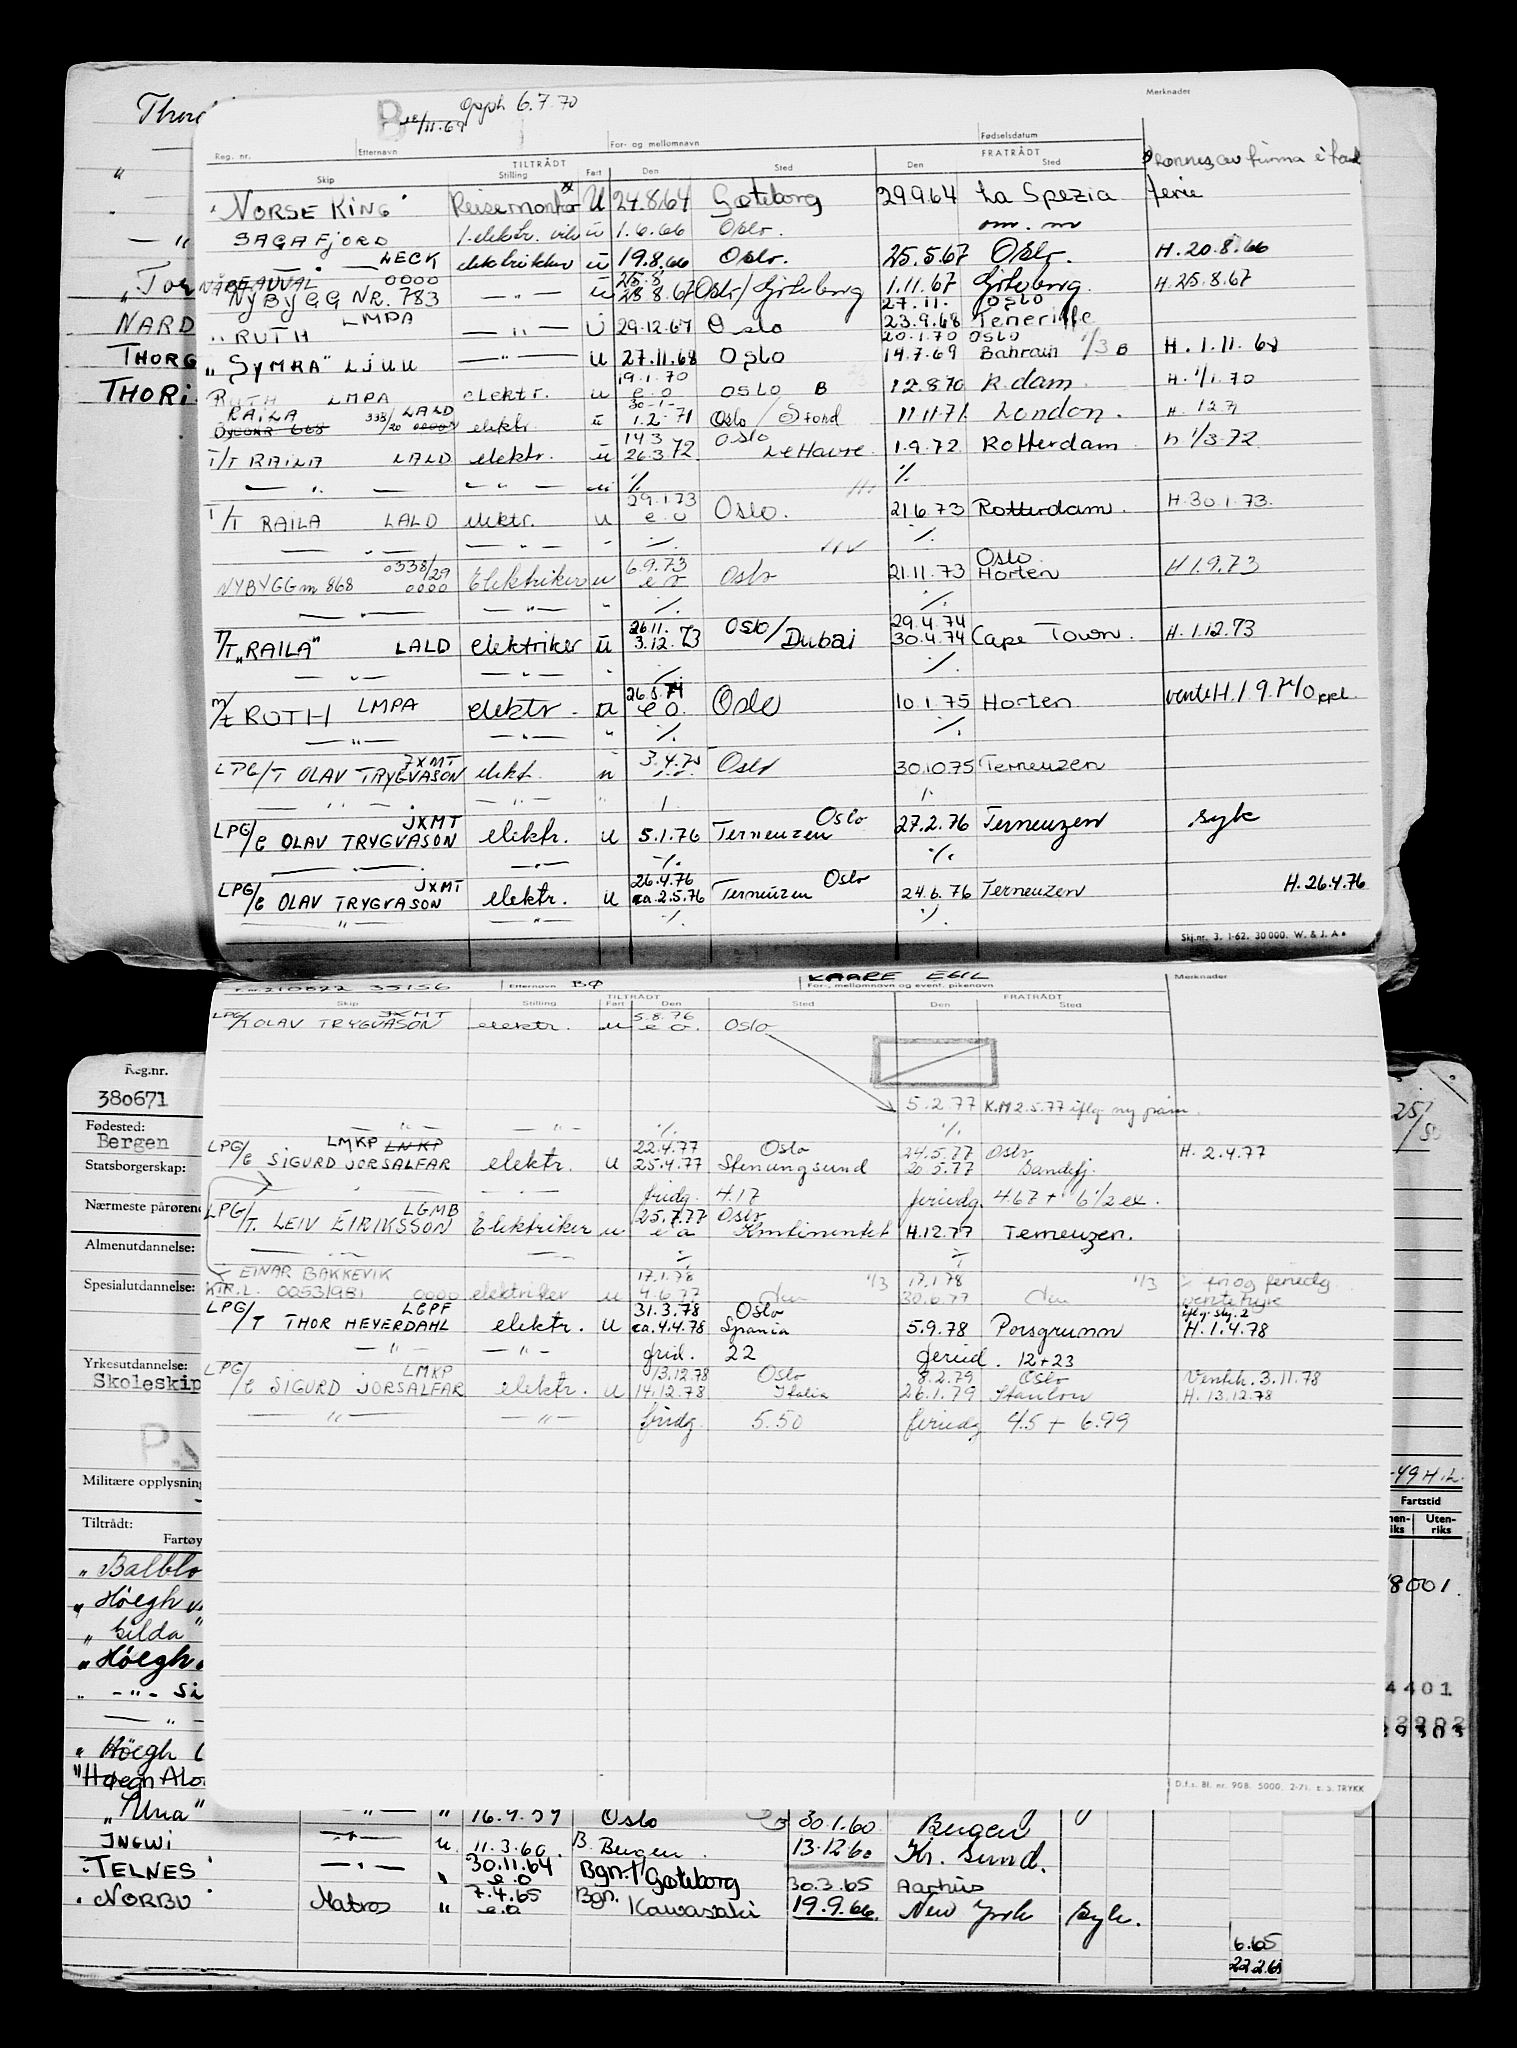 Opph 6.7.70
18/11.69
Merknader
Reg. nr. Etternavn For- og mellomnavn Fødselsdatum
TILTRÅDT FRATRÅDT
Skip Stilling Fart Den Sted Den Sted
Lønnes av firma i land
"NORSE KING" Reisemontør U 24.8.64 Gøteborg 29.9.64 La Spezia ferie
SAGAFJORD 1.elektr. vik u 1.6.66 Oslo. om. m
LECK elektriker u 19.8.66 Oslo. 25.5.67 Oslo. H. 20.8.66
BEAUVAL 0000 25.8
NYBYGG NR. 783 — " — u 28.8.67 Oslo/Göteborg 1.11.67 Göteborg. H. 25.8.67
LMPA 27.11. Oslo
"RUTH — " — U 29.12.67 Oslo 23.9.68 Teneriffe
20.1.70 OSLO
"SYMRA" LJUU — " — u 27.11.68 OSLO 14.7.69 Bahrain 1/3 B H. 1.11.68
19.1.70
RUTH LMPA elektr. u e.o OSLO B 12.8.70 R.dam. H. 1/1.70
RAILA 338/20 LALD 30-1-
elektr. u 1.2.71 Oslo / Sfond 11.11.71. London. H. 12.71
14.3 OSLO
T/T RAILA LALD elektr. u 26.3.72 Le Havre. 1.9.72 Rotterdam H 1/3.72
— " — — " — ./. ./.
29.1.73
T/T RAILA LALD elektr. u e.o Oslo. 21.6.73 Rotterdam. H. 30.1.73.
— " — — " — ./. ./.
0338/29 6.9.73 Oslo
NYBYGG nr 868 0000 Elektriker u e o Oslo 21.11.73 Horten H 1.9.73
— " — — " — " ./. ./.
26.11. 29.4.74
T/T "RAILA" LALD elektriker u 3.12.73 Oslo/Dubai 30.4.74 Cape Town. H. 1.12.73
— " — " ./. ./.
26.8.74
M/T RUTH LMPA elektr. u e o. Oslo 10.1.75 Horten vente H. 1.9.74
— " — " ./. ./.
JXMT 3.4.75
LPG/T OLAV TRYGVASON elekt. u Oslo 30.10.75 Terneuzen
— " — — " — "
JXMT Oslo
LPG/T OLAV TRYGVASON elektr. u 5.1.76 Terneuzen 27.2.76 Terneuzen syk
— " — — " — ./. ./.
JXMT 26.4.76 Oslo
LPG/T OLAV TRYGVASON elektr. u ca.2.5.76 Terneuzen 24.6.76 Terneuzen H. 26.4.76
— " — — " — ./. ./.
Skj.nr. 3. 1-62. 30 000. W. & J. A.
210822 35156 Etternavn BØ KAARE EGIL
For-, mellomnavn og event. pikenavn Merknader
TILTRÅDT FRATRÅDT
Skip Stilling Fart Den Sted Den Sted
JXMT 5.8.76
LPG/T OLAV TRYGVASON elektr. u e o. OSLO
5.2.77 K.M 2.5.77 iflg. ny
— " — — " — ./. ./.
LMKP LNKP 22.4.77 Oslo 24.5.77 Oslo
LPG/T SIGURD JORSALFAR elektr. u 25.4.77 Stenungsund 20.5.77 Sandefj. H. 2.4.77
fridg. 4.17 feriedg. 4.67 + 6 1/2 ex.
LGMB 25.7.77 Oslo
LPG/T. LEIV EIRIKSSON Elektriker u e o Kontinentet 4.12.77 Terneuzen.
— " — — " — ./. ./.
EINAR BAKKEVIK 17.1.78 1/3 17.1.78 1/3 fri og feriedg.
KTR.L. 00531981 0000 elektriker u 4.6.77 30.6.77 ventehyre
LCPF 31.3.78 Oslo iflg. skj. 2
LPG/T THOR HEYERDAHL elektr. u ca.4.4.78 Spania 5.9.78 Porsgrunn H. 1.4.78
— " — — " — frid. 22 feried. 12+23
LMKP 13.12.78 Oslo 8.2.79 Oslo Venteh. 3.11.78
LPG/T SIGURD JORSALFAR elektr. u 14.12.78 Italia 26.1.79 H. 13.12.78
— " — — " — fridg. 5.50 feriedg 4.5 + 6.99
D.f.s. Bl. nr. 908. 5000. 2-71. E.S. TRYKK
NARD
THORG
THORI
Reg.nr.
380671
Fødested:
Bergen
Statsborgerskap:
Nærmeste pårøren
Almenutdannelse:
Spesialutdannelse:
Yrkesutdannelse:
Skoleskip
Militære opplysning
Tiltrådt:
Fartøy
-49 H.L.
Fartstid
Uten-
riks
"Balblo
"Høegh
"Gilda"
"Høegh
" - " - Si
"Høegh
"Høegh Alo
8001.
4401
"Una" — " — " 16.9.59 Oslo 30.1.60 Bergen
INGWI — " — u. 11.3.60. B. Bergen. 13.12.60 Kr. Sund.
30.11.64
"TELNES" — " — " e.o Bgn./Gøteborg 30.3.65 Aarhus
7.4.65
"NORBU" Matros " e.o Bgn. Kawasaki 19.9.66. New York Syk.
6.65
22.2.65